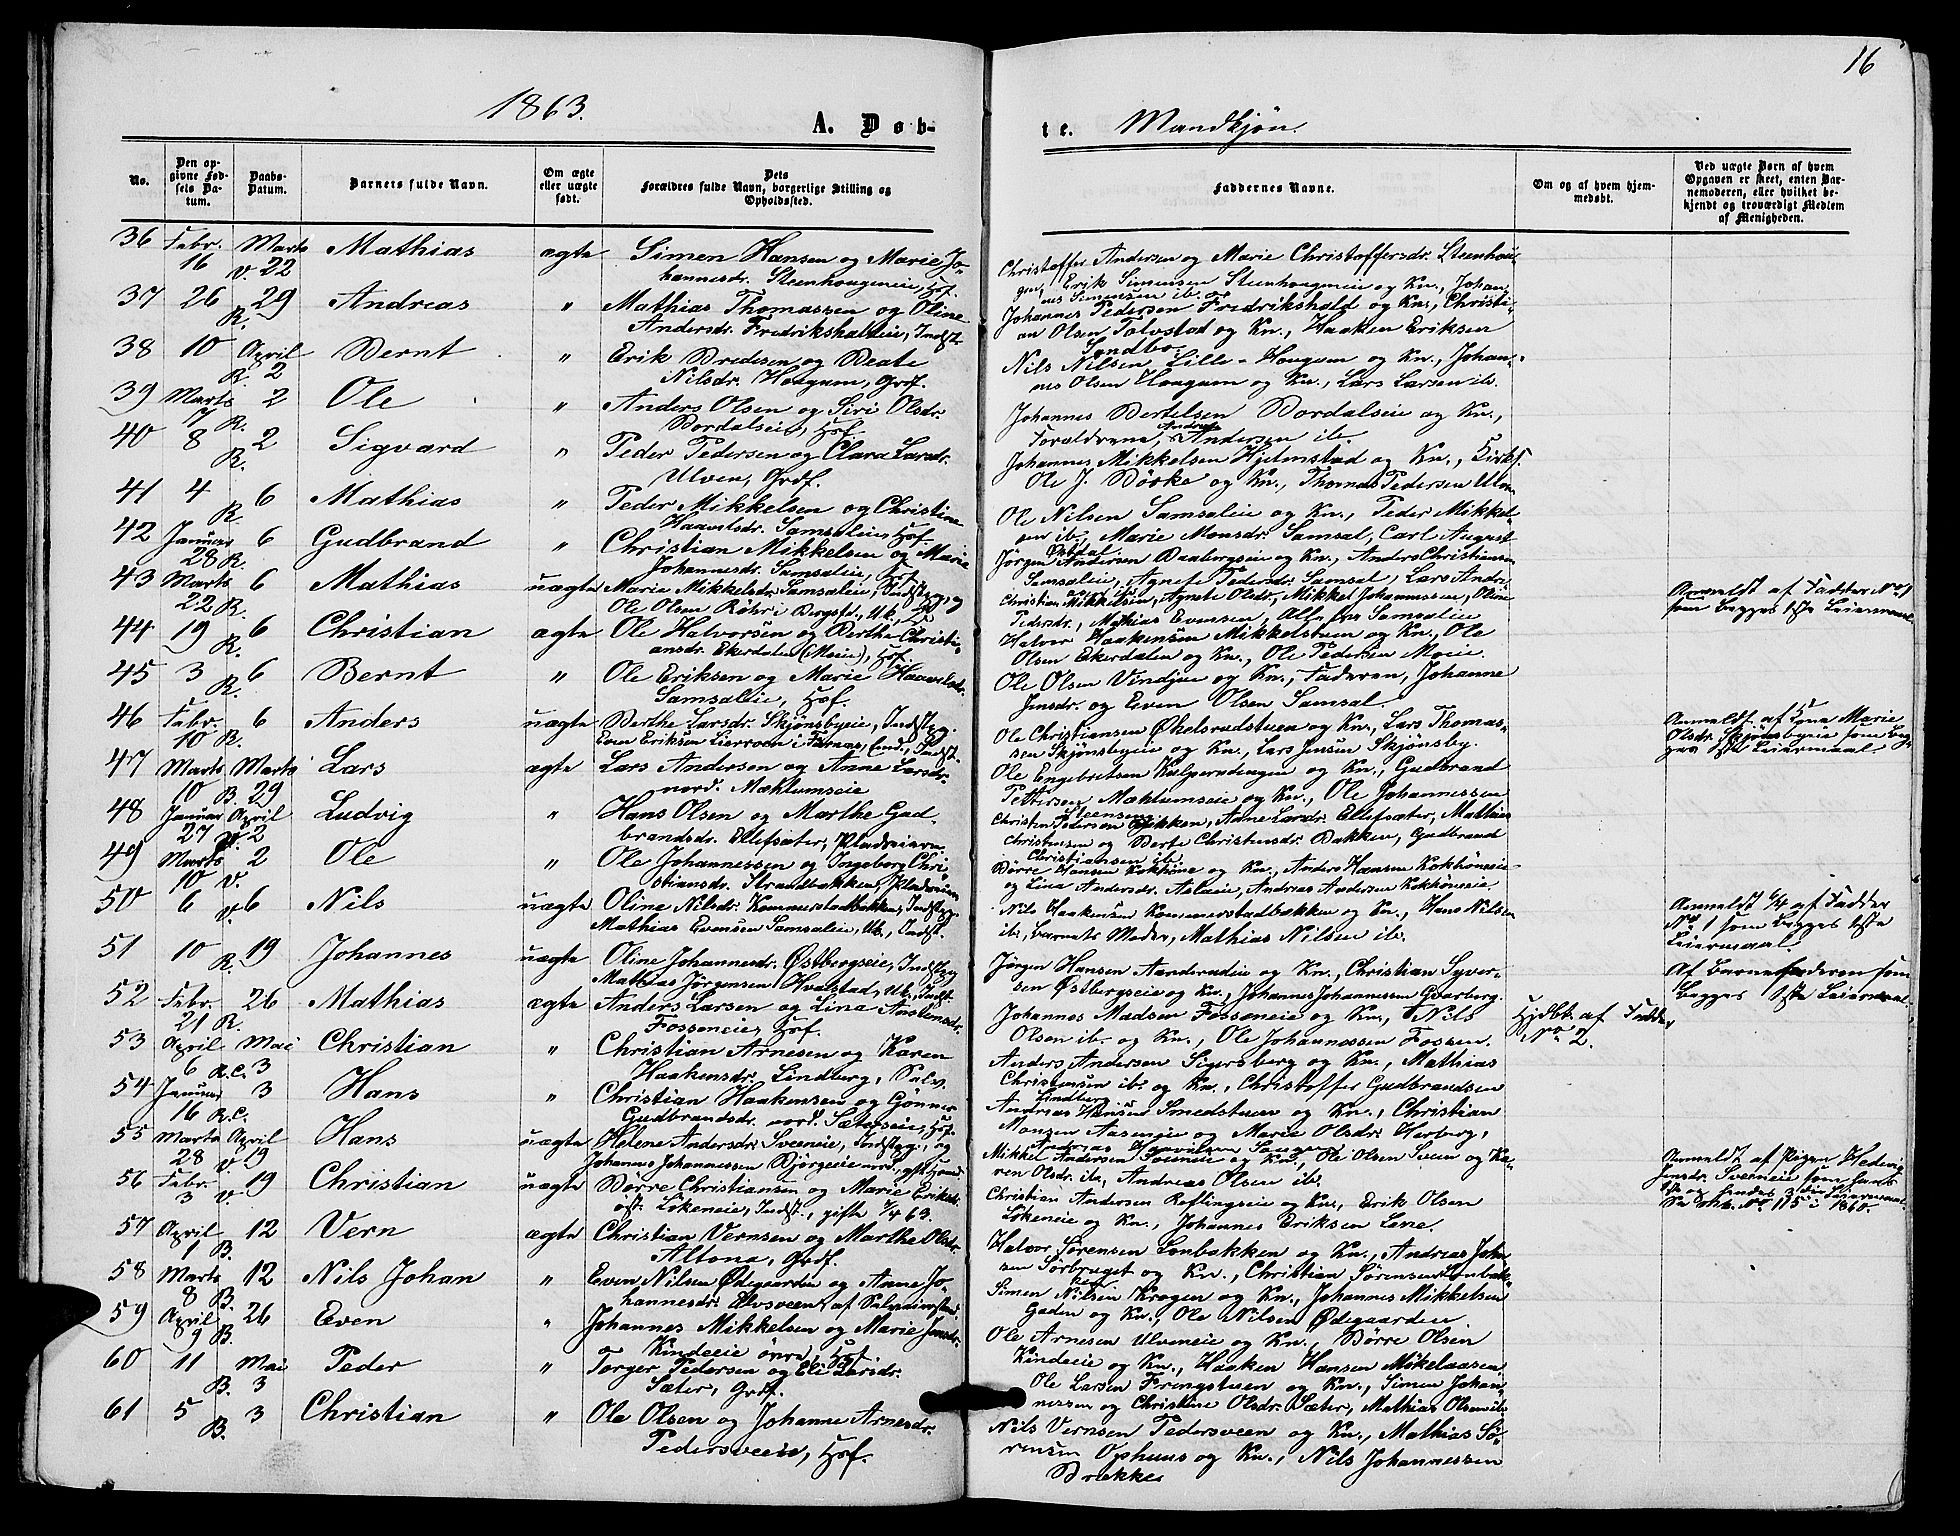 16
1863.
A. Døb-
te. Mandkjøn.
No.
Den op-
givne Fød-
sels Da-
tum.
Daabs-
Datum.
Barnets fulde Navn.
Om ægte
eller uægte
født.
Dets
Forældres fulde Navn, borgerlige Stilling og
Opholdssted.
Faddernes Navne.
Om og af hvem hjem-
medøbt.
Ved uægte Børn af hvem
Opgaven er skeet, enten Bar-
nemoderen, eller hvilket be-
kjendt og troværdigt Medlem
af Menigheden.
36 Febr. Marts Mathias ægte Simen Hansen og Marie Jo-
16 V. 22 hannesdr. Steenhougeneie, Hsf.
Christoffer Andersen og Marie Christoffersdr. Steenhou-
gen, Erik Simensen Steenhougeneie og Kn., Johan-
nes Simensen ib.
37 26 R. 29 Andreas " Mathias Thomassen og Oline
Andersdr. Fredrikshaldeie, Indst.
Johannes Pedersen Fredrikshald og Kn., Christi-
an Olsen Tolvstad og Kn., Haaken Eriksen
Lundbo.
38 10 April Bernt " Erik Bredesen og Beate
R. 2 Nilsdr. Hougum, Grdf.
Nils Nilsen Lille-Hougum og Kn., Johan-
nes Olsen Hougum og Kn., Lars Larsen ib.
39 Marts 2 Ole " Anders Olsen og Siri Olsdr.
7 R. Bordalseie, Hsf.
Johannes Bertelsen Bordalseie og Kn.,
Forældrene, Andreas Andersen ib.
40 8 R. 2 Sigvard " Peder Pedersen og Clara Larsdr.
Ulven, Grdf.
Johannes Mikkelsen Hjelmstad og Kn., Kirks.
Ole J. Börke og Kn., Thomas Pedersen Ulven
41 4 R. 6 Mathias " Peder Mikkelsen og Christine
Haavelsdr. Samsaleie, Hsf.
Ole Nilsen Samsaleie og Kn., Peder Mikkel-
sen ib., Marie Monsdr. Samsal, Carl August
Østdal.
42 Januar 6 Gudbrand " Christian Mikkelsen og Marie
28 R. Johannesdr. Samsaleie, Hsf.
Jörgen Andersen Baabergseie og Kn., Anders Christiansen
Samsaleie, Agnete Pedersdr. Samsal, Lars Andr.
43 Marts 6 Mathias uægte Marie Mikkelsdr. Samsaleie, Indstpg. og
22 R. Ole Olsen Röhri Bergset., Uk.,
Christian Mikkelsen, Agnete Olsdr., Mikkel Johannessen, Oline
Pedersdr., Mathias Evensen, Alle fra Samsaleie
Anmeldt af Fadder No. 1
som Begges 1ste Leiermaal.
44 19 R. 6 Christian ægte Ole Halvorsen og Berthe Christi-
ansdr. Ekerdalen (Moeie), Hsf.
Halvor Haakensen Mikkelstuen og Kn., Ole
Olsen Ekerdalen og Kn., Ole Pedersen Moeie.
45 3 R. 6 Bernt " Ole Eriksen og Marie Haavelsdr.
Samsaleie, Hsf.
Ole Olsen Vindjue og Kn., Faderen, Johanne
Jensdr. og Even Olsen Samsal.
46 Febr. 6 Anders uægte Berthe Larsdr. Skjönsbyeie, Indstpg.
10 R. Even Eriksen Lierroen i Furnæs, Enk., Indst.
Ole Christiansen Økelsrudstuen og Kn., Lars Thomas-
sen Skjönsbyeie og Kn., Lars Jensen Skjönsby.
Anmeldt af Enke Marie
Olsdr. Skjönsbyeie som Beg-
ges 1ste Leiermaal
47 Marts Marts Lars ægte Lars Andersen og Anne Larsdr.
10 B. 29 nord. Mæhlumseie
Ole Engebretsen Kulperudengen og Kn., Gudbrand
Pettersen Mæhlumseie og Kn., Ole Johannessen
Steensen.
48 Januar April Ludvig " Hans Olsen og Marthe Gud-
27 V. 2 brandsdr. Ellefsæter, Pladseierm.
Christen Pedersen Bakken, Anne Larsdr. Ellefsæter, Mathias
Christensen og Berte Christensdr. Bakken, Gudbrand
Christiansen ib.
49 Marts 2 Ole " Ole Johannessen og Ingeborg Chri-
10 V. stiansdr. Strandbakken, Pladseierm.
Börre Hansen Kokhöne og Kn., Anders Hansen Kokhöneie
og Lina Andersdr. Aslaeie, Andreas Andersen Kokhöneie.
50 6 V. 6 Nils uægte Oline Nilsdr. Kommerstadbakken, Indstpg.
Mathias Evensen Samsaleie, Uk., Indst.
Nils Haakensen Kommerstadbakken og Kn., Hans Nilsen
ib., Barnets Moder, Mathias Nilsen ib.
Anmeldt 6/4 af Fadder
No. 1 som Begges 1ste
Leiermaal.
51 10 R. 19 Johannes uægte Oline Johannesdr. Østbergseie, Indstpg
Mathias Jörgensen Hvalstad, Uk., Indst.
Jörgen Hansen Aanderudeie og Kn., Christian Syver-
sen Østbergseie og Kn., Johannes Johannessen Gvarberg.
Af Barnefaderen som
Begges 1ste Leiermaal.
52 Febr. 26 Mathias ægte Anders Larsen og Lina Anstensdr.
21 R. Fosseneie, Hsf.
Johannes Madsen Fosseneie og Kn., Nils
Olsen ib. og Kn., Ole Johannessen Fossen.
Hjdbt. af Fadder
No. 2.
53 April Mai Christian " Christian Arnesen og Karen
6 R.C. 3 Haakensdr. Lindberg, Selv.
Anders Andersen Sigersberg og Kn., Mathias
Christensen ib. og Kn., Christoffer Gudbrandsen
Lindberg
54 Januar 3 Hans " Christian Haakensen og Gönner
16 R.C. Gudbrandsdr. nord. Sæterseie, Hsf.
Andreas Hansen Smedstuen og Kn., Christian
Monsen Aaseneie og Marie Olsdr. Herberg,
55 Marts April Hans uægte Helene Andersdr. Sveeneie, Indstpg., og
28 V. 19 Johannes Johannessen Björgeeie nord., gift Huusd.
Mikkel Andersen Tueneie og Kn., Ole Olsen Tuen og Ka-
ren Olsdr. ib., Andreas Olsen ib.
Anmeldt af Pigen Hedevig
Jensdr. Sveeneie som hans
1ste og hendes 2det Leiermaal.
56 Febr. 19 Christian uægte Börre Christiansen og Marie Eriksdr.
3 V. øst. Løkeneie, Indst., gifte 7/4 63.
Christian Andersen Reflingseie og Kn., Erik Olsen
Løkeneie og Kn., Johannes Eriksen Lene.
57 April 12 Vern ægte Christian Vernsen og Marthe Olsdr.
1 B. Altona, Grdf.
Halvor Sørensen Lonbakken og Kn., Andreas John-
sen Sörbryget og Kn., Christian Sørensen Lonbak-
ken.
58 Marts 12 Nils Johan " Even Nilsen Ødegaarden og Anne Jo-
8 B. hannesdr. Elvsveen,
Simen Nilsen Krogen og Kn., Johannes Mikkelsen
Gaden og Kn., Ole Nilsen Ødegaarden
59 April 26 Even " Johannes Mikkelsen og Marie Jensdr.
9 B. Kindeeie övre, Hsf.
Ole Arnesen Ulvneie og Kn., Börre Olsen
Kindeeie og Kn., Haaken Hansen Mikelaasen
60 11 Mai Peder " Torger Pedersen og Eli Larsdr.
B. 3 Sæter, Grdf.
Ole Larsen Fringstuen og Kn., Simen Johan-
nessen og Christine Olsdr. Sæter, Mathias Olsen ib.
61 5 B. 3 Christian " Ole Olsen og Johanne Arnesdr.
Pedersveeie, Hsf.
Nils Vernsen Pedersveen og Kn., Mathias Sö-
rensen Ophuus og Kn., Nils Johannessen
Brække